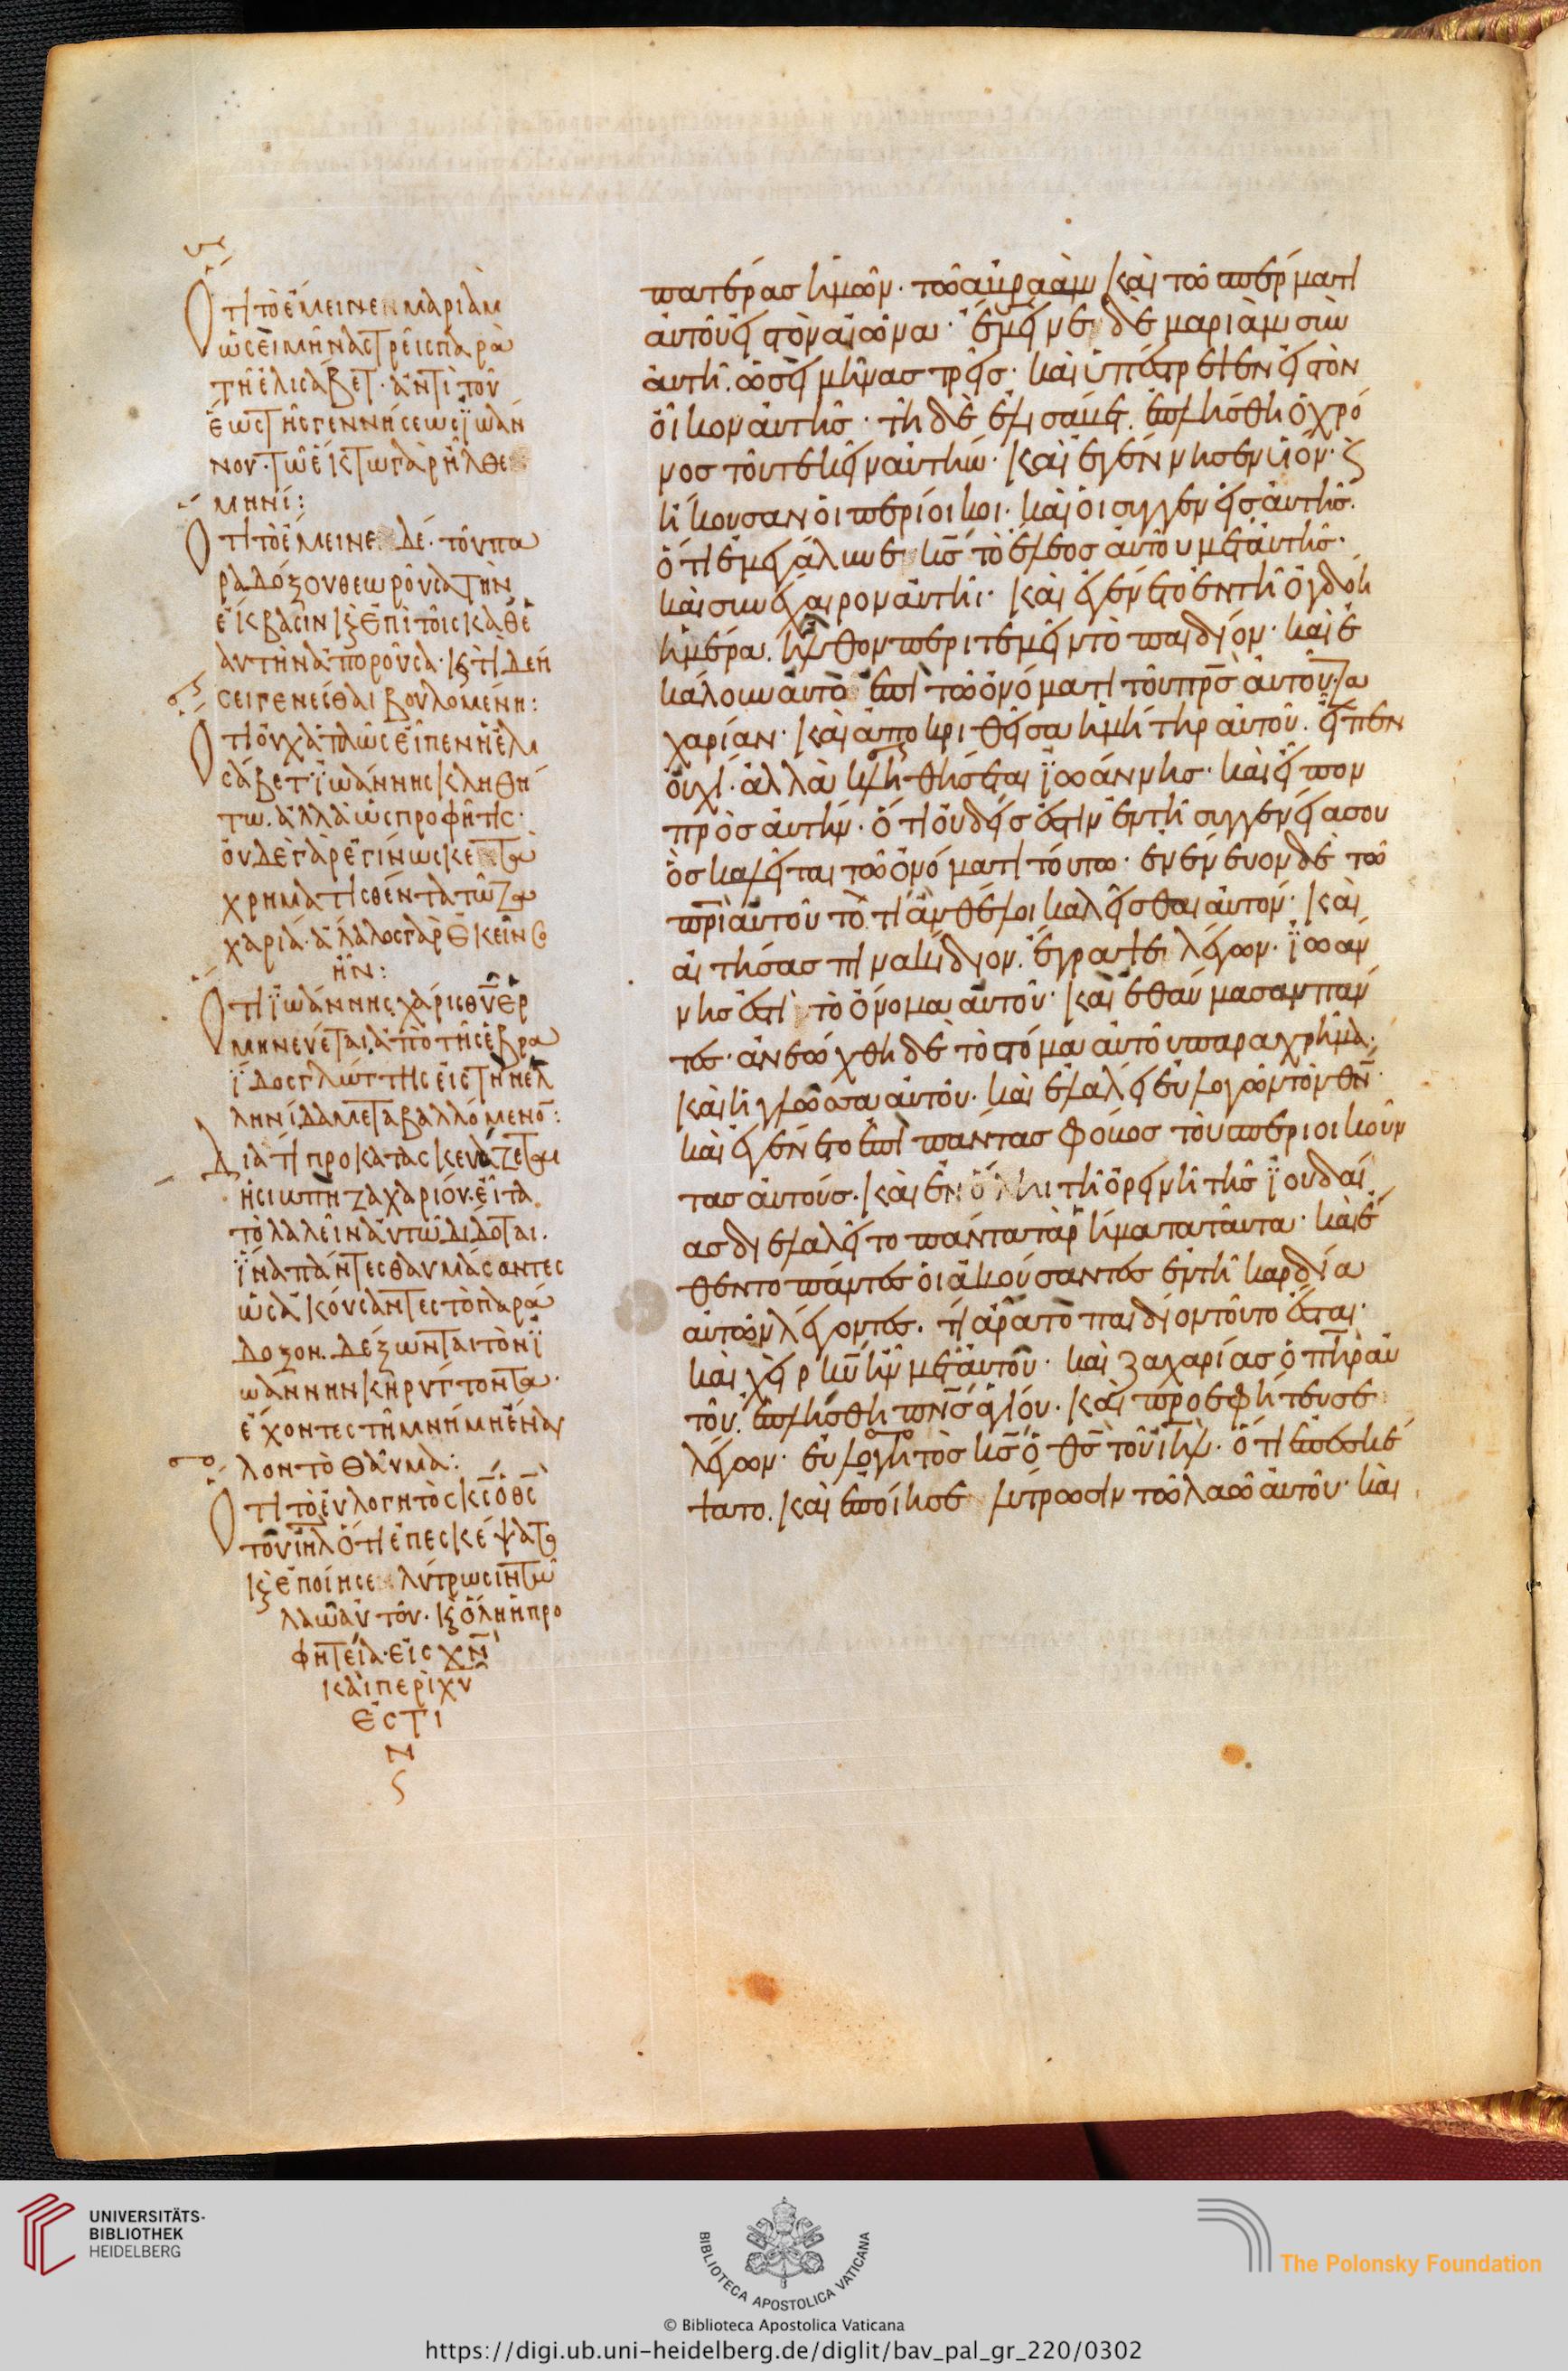 Ὅτι τὸ ἔμεινεν μαριὰμ
ὡσεὶ μῆνας τρεῖς παρὰ
τῆ ἐλισάβετ· ἀντὶ τοῦ
ἕως τῆς γεννήσεως ἰωάν
νου· τῶ ἕκτω γὰρ ἦλθε
μηνί:
Ὅτι τὸ ἔμεινε δέ· τοῦ πα
ραδόξου θεωροῦσα τὴν
ἔκβασιν κ̀ ἐπὶ τοῖς καθ ἑ
αυτὴν ἀποροῦσα· κ̀ τί δεή
σει γενέσθαι βουλομένη:
Ὅτι οὐχ ἁπλῶς εἶπεν ἡ ἐλι
σάβετ ἰωάννης κληθή
τω· ἀλλὰ ὡς προφῆτις·
οὐδὲ γὰρ ἐγίνωσκε τὰ
χρηματισθέντα τῶ ζα
χαρία· ἄλαλος γὰρ ἐκεῖνος
ἦν:
Ὅτι ἰωάννης, χάρις θῦ ἑρ
μηνεύεται ἀπὸ τῆς ἑβρα
ΐδος γλώττης εἰς τὴν ἑλ
ληνίδα μεταβαλλόμενον:
Διατί προκατασκευάζεται
ἡ σιωπὴ ζαχαρίου· εἶτα
τὸ λαλεῖν αὐτῶ δίδοται·
ἵνα πάντες θαυμάσοντες
ὡς ἀκούσαντες τὸ παρά
δοξον· δέξωνται τὸν ἰ
ωάννην κηρύττοντα·
ἔχοντες τῆ μνήμη ἔναυ
λον τὸ θαῦμα:
Ὅτι τὸ εὐλογητὸς κς ὁ θς
τοῦ ιηλ ὅτι ἐπεσκέψατο
κ̀ ἐποίησε λύτρωσιν τῶ
λαῶ αὐτοῦ· κ̀ ὅλη ἡ προ
φητεία· εἰς χν
καὶ περὶ χυ
ἐστι
ν
πατέρας ἡμῶν· τῶ ἀβραὰμ καὶ τῶ σπέρματι
αὐτοῦ εἰς τὸν αἰῶνα· ἔμεινε δὲ μαριὰμ σὺν
αὐτῆ· ὡσεὶ μῆνας τρεῖς· καὶ ὑπέστρεψεν εἰς τὸν
οἶκον αὐτῆς· τῆ δὲ ἐλισάβετ. ἐπλήσθη ὁ χρό
νος τοῦ τεκεῖν αὐτήν· καὶ ἐγέννησεν υἱόν· κ̀
ἤκουσαν οἱ περίοικοι· καὶ οἱ συγγενεῖς αὐτῆς·
ὅτι ἐμεγάλυνε κς τὸ ἔλεος αὐτοῦ μετ αὐτῆς·
καὶ συνέχαιρον αὐτῆι· καὶ ἐγένετο ἐν τῆ ὀγδόη
ἡμέρα. ἦλθον περιτεμεῖν τὸ παιδίον· καὶ ἐ
κάλουν αὐτὸ ἐπὶ τῶ ὀνόματι τοῦ πρς αὐτοῦ ζα
χαρίαν· καὶ ἀποκριθεῖσα ἡ μήτηρ αὐτοῦ. εἶπεν
οὐχί· ἀλλὰ κληθήσεται ἰωάννης· καὶ εἶπον
πρὸς αὐτήν· ὅτι οὐδείς ἐστιν ἐν τῆ συγγενεία σου
ὃς καλεῖται τῶ ὀνόματι τούτω· ἐνένευον δὲ τῶ
πρὶ αὐτοῦ τὸ τί ἂν θέλοι καλεῖσθαι αὐτόν· καὶ
αἰτήσας πινακίδιον. ἔγραψε λέγων· ἰωάν
νης ἐστὶ τὸ ὄνομα αὐτοῦ· καὶ ἐθαύμασαν πάν
τες· ἀνεώχθη δὲ τὸ στόμα αὐτοῦ παραχρῆμα·
καὶ ἡ γλῶσσα αὐτοῦ· καὶ ἐλάλει εὐλογῶν τὸν θν·
καὶ ἐγένετο ἐπὶ πάντας φόβος τοὺς περιοικοῦν
τας αὐτούς· καὶ ἐν ὅλη τῆ ὀρεινῆ τῆς ἰουδαί
ας διελαλεῖτο πάντα τὰ ῥήματα ταῦτα· καὶ ἔ
θεντο πάντες οἱ ἀκούσαντες ἐν τῆ καρδία
αὐτῶν λέγοντες. τί ἄρα τὸ παιδίον τοῦτο ἔσται·
καὶ χεὶρ κυ ἦν μετ αὐτοῦ· καὶ ζαχαρίας ὁ πηρ αὐ
τοῦ. ἐπλήσθη πνς ἁγίου· καὶ προεφήτευσε
λέγων· εὐλογητὸς κς ὁ θς τοῦ ιηλ· ὅτι ἐπεσκέ
ψατο. καὶ ἐποίησε λύτρωσιν τῶ λαῶ αὐτοῦ· καὶ
UNIVERSITÄTS-
BIBLIOTHEK
HEIDELBERG
BIBLIOTECA APOSTOLICA VATICANA
The Polonsky Foundation
© Biblioteca Apostolica Vaticana
https://digi.ub.uni-heidelberg.de/diglit/bav_pal_gr_220/0302